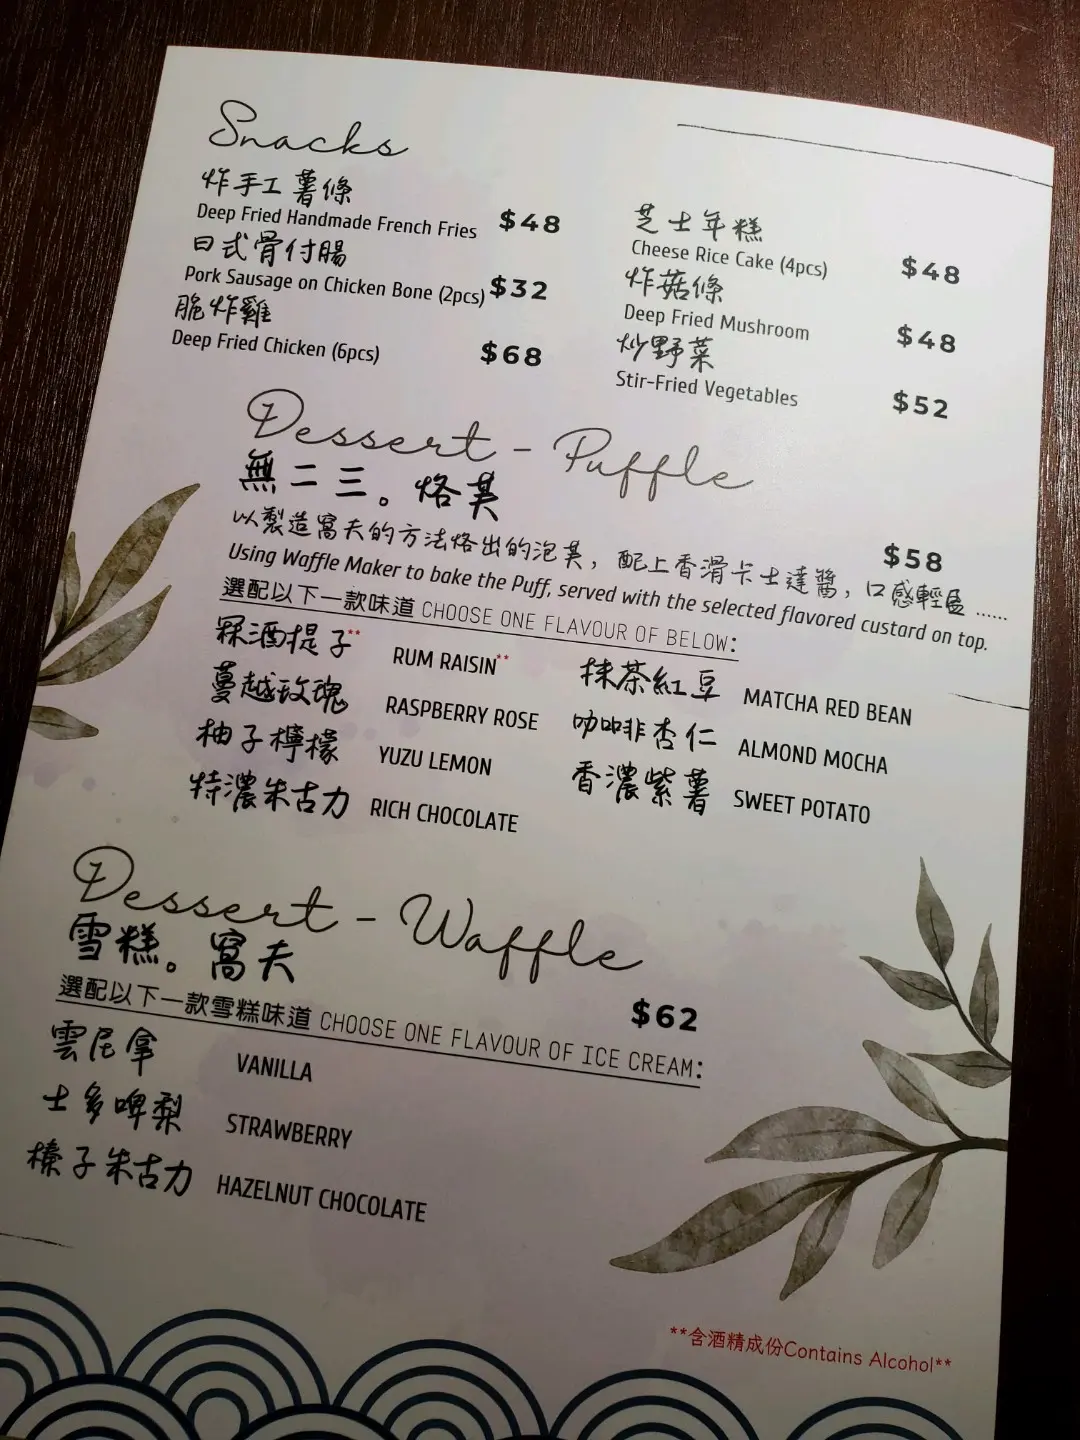 Snacks
炸手工薯條
Deep Fried Handmade French Fries $48
日式骨付腸
Pork Sausage on Chicken Bone (2pcs) $32
脆炸雞
Deep Fried Chicken (6pcs) $68
芝士年糕
Cheese Rice Cake (4pcs) $48
炸菇條
Deep Fried Mushroom $48
炒野菜
Stir-Fried Vegetables $52
Dessert - Puffle
無二三。烙芙
$58
以製造窩夫的方法烙出的泡芙，配上香滑卡士達醬，口感輕盈......
Using Waffle Maker to bake the Puff, served with the selected flavored custard on top.
選配以下一款味道 CHOOSE ONE FLAVOUR OF BELOW:
冧酒提子** RUM RAISIN**
蔓越玫瑰 RASPBERRY ROSE
柚子檸檬 YUZU LEMON
特濃朱古力 RICH CHOCOLATE
抹茶紅豆 MATCHA RED BEAN
咖啡杏仁 ALMOND MOCHA
香濃紫薯 SWEET POTATO
Dessert - Waffle
雪糕。窩夫
$62
選配以下一款雪糕味道 CHOOSE ONE FLAVOUR OF ICE CREAM:
雲尼拿 VANILLA
士多啤梨 STRAWBERRY
榛子朱古力 HAZELNUT CHOCOLATE
**含酒精成份Contains Alcohol**